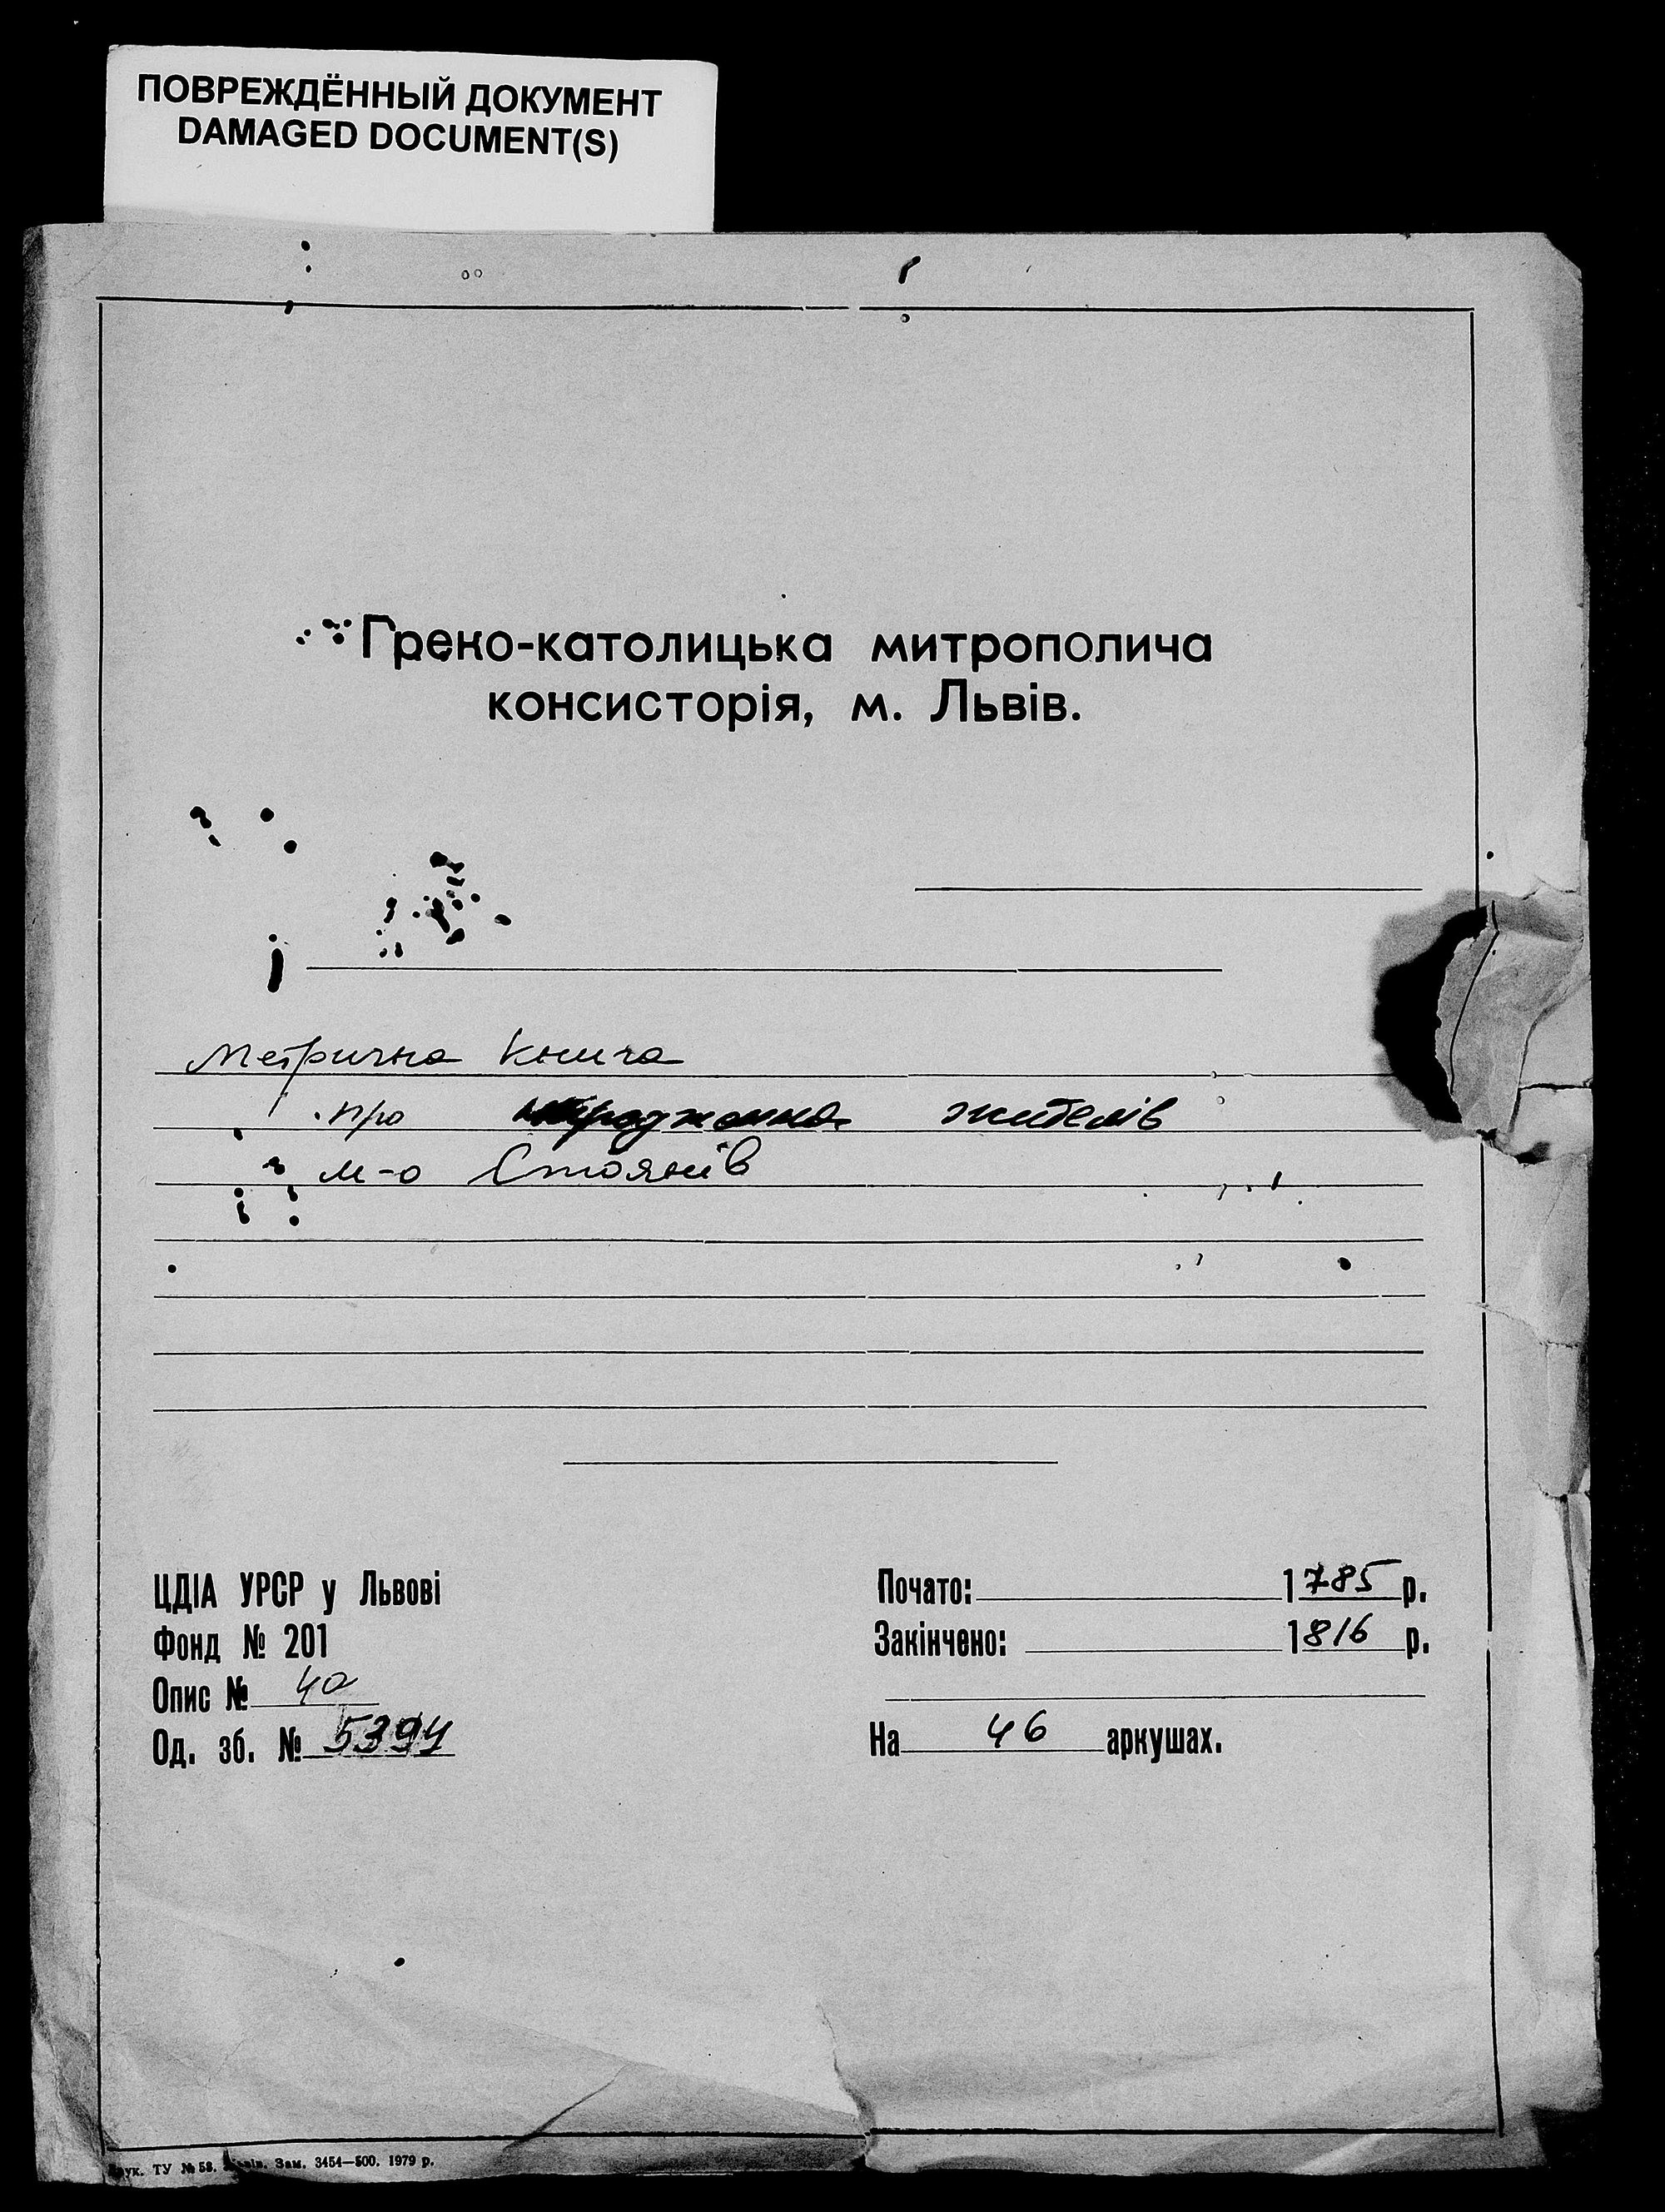 ПОВРЕЖДЁННЫЙ ДОКУМЕНТ
DAMAGED DOCUMENT(S)
Греко-католицька митрополича
консисторія, м. Львів.
Метрична книга
про народження жителів
м-о Стоянів
ЦДІА УРСР у Львові
Фонд № 201
Опис № 4а
Од. зб. № 5394
Почато: 1785 р.
Закінчено: 1816 р.
На 46 аркушах.
ТУ № 58. Зам. 3454—500. 1979 р.